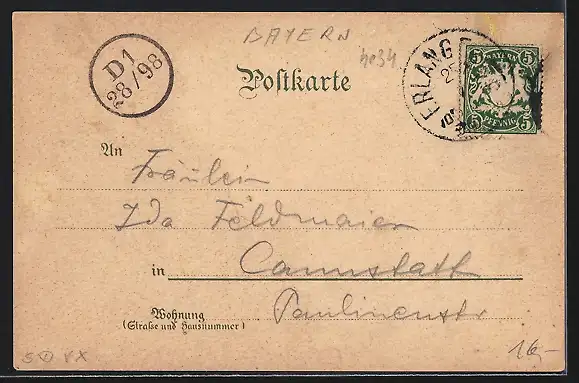 BAYERN
D1
28/98
Postkarte
ERLANG
5 BAYERN 5
5 PFENNIG 5
An
Fräulein
Ida Feldmaier
in Cannstatt
Wohnung
(Straße und Hausnummer)
Paulinenstr
16,-